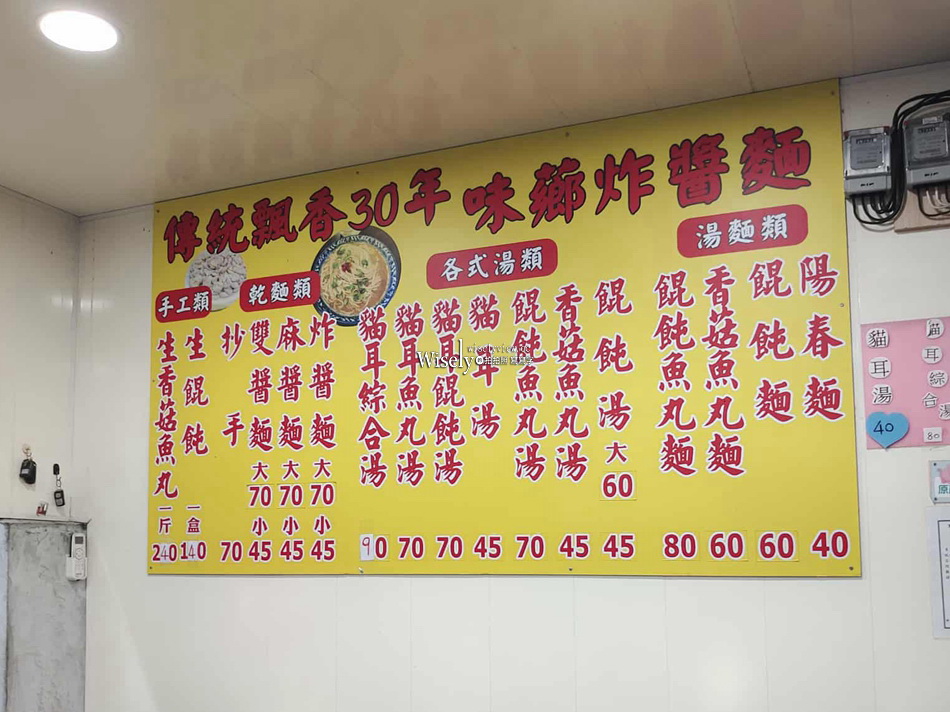 傳統飄香30年 味薌炸醬麵
湯麵類
陽春麵 40
餛飩麵 60
香菇魚丸麵 60
餛飩魚丸麵 80
各式湯類
餛飩湯 大 60 45
香菇魚丸湯 45
餛飩魚丸湯 70
貓耳湯 45
貓耳餛飩湯 70
貓耳魚丸湯 70
貓耳綜合湯 90
乾麵類
炸醬麵 大 70 小 45
麻醬麵 大 70 小 45
雙醬麵 大 70 小 45
抄手 70
手工類
生餛飩 一盒 140
生香菇魚丸 一斤 240
Wisely
貓耳湯
40
貓耳綜合湯
80